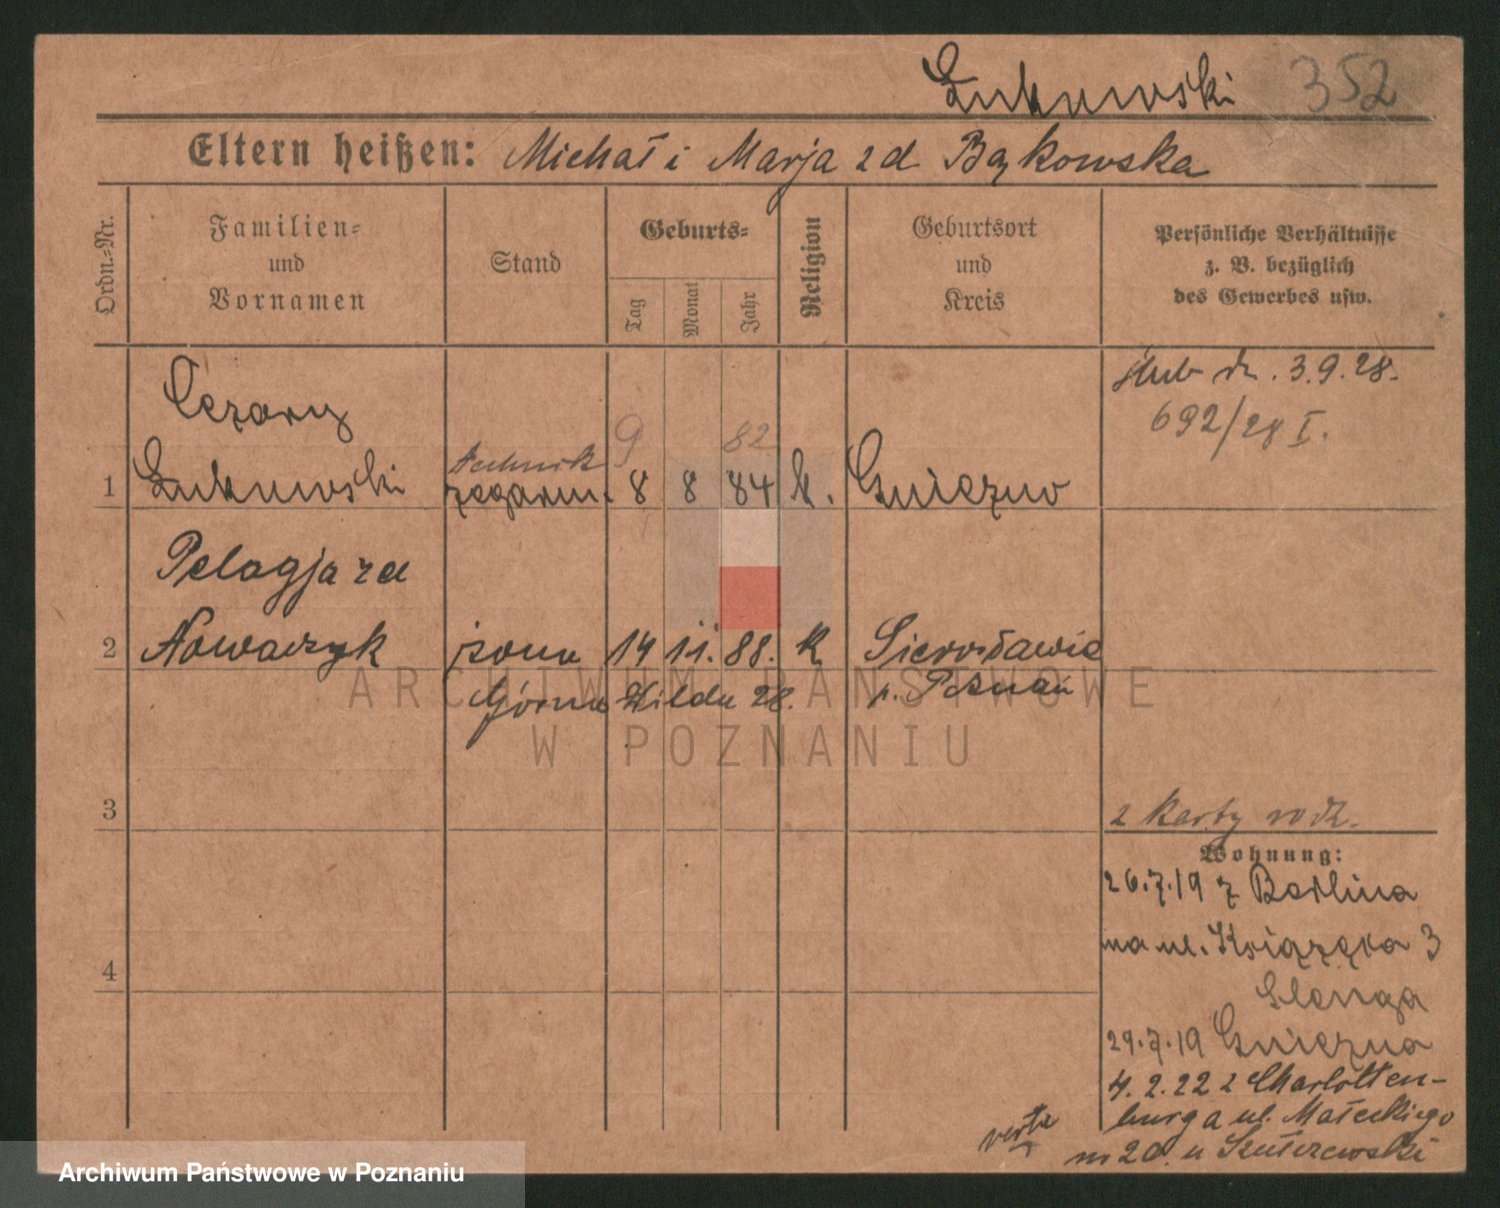 Łukowski 352
Eltern heißen: Michał i Marja zd Bąkowska
Ordn.-Nr.
Familien-
und
Vornamen
Stand
Geburts-
Tag
Monat
Jahr
Religion
Geburtsort
und
Kreis
Persönliche Verhältnisse
z. B. bezüglich
des Gewerbes usw.
ślub dn. 3.9.28.
692/28 I.
Cezary
9 82
technik
1 Łukowski zegarm. 8 8 84 k. Gniezno
Pelagja zd
2 Nowaczyk żona 14 11. 88. k Sierosławie
Górna Wilda 28. p. Poznań
ARCHIWUM PAŃSTWOWE
W POZNANIU
3
2 karty rodz.
Wohnung:
26.7.19 z Berlina
na ul. Książęca 3
4
29.7.19 Gniezno
4.2.22 z Charlotten-
burga ul. Małeckiego
nr 20. u
verte
Archiwum Państwowe w Poznaniu